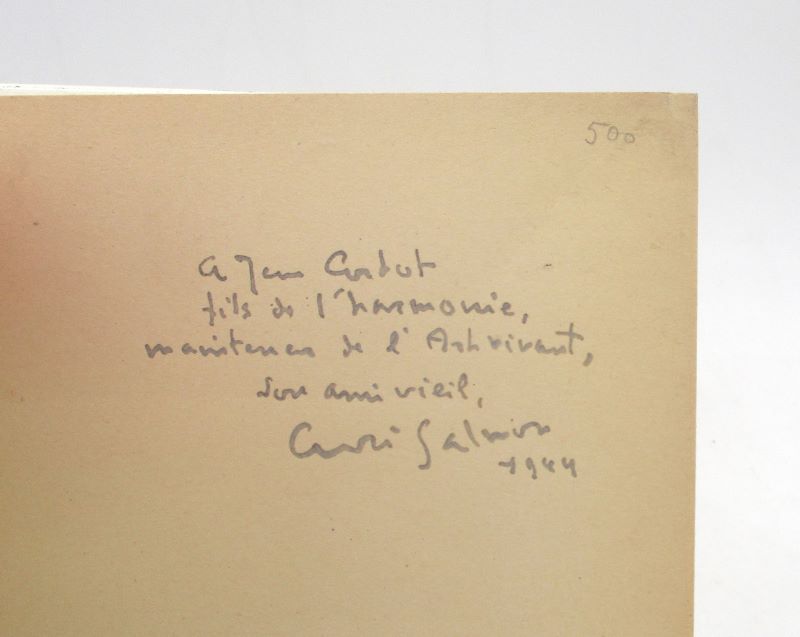 500
A Jean Cortot
fils de l'harmonie,
mainteneur de l'Art vivant,
son ami vieil,
André Salmon
1944